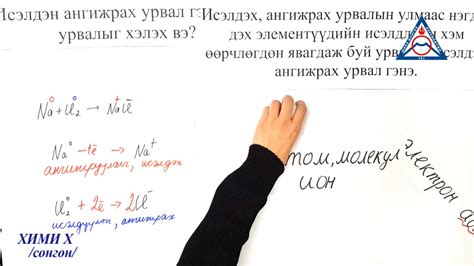 Исэлдэн ангижрах урвал гэ
урвалыг хэлэх вэ?
Исэлдэх, ангижрах урвалын улмаас нэгд
дэх элементүүдийн исэлд н хэм
өөрчлөгдөн явагдаж буй урв сэлд
ангижрах урвал гэнэ.
Na⁰ + Cl₂⁰ → Na⁺Cl⁻
Na⁰ -1ē → Na⁺
ангижруулагч, исэлдэх
Cl₂⁰ + 2ē → 2Cl⁻
исэлдүүлэгч, ангижрах
том, молекул электрон
ион
ХИМИ X
/сонгон/